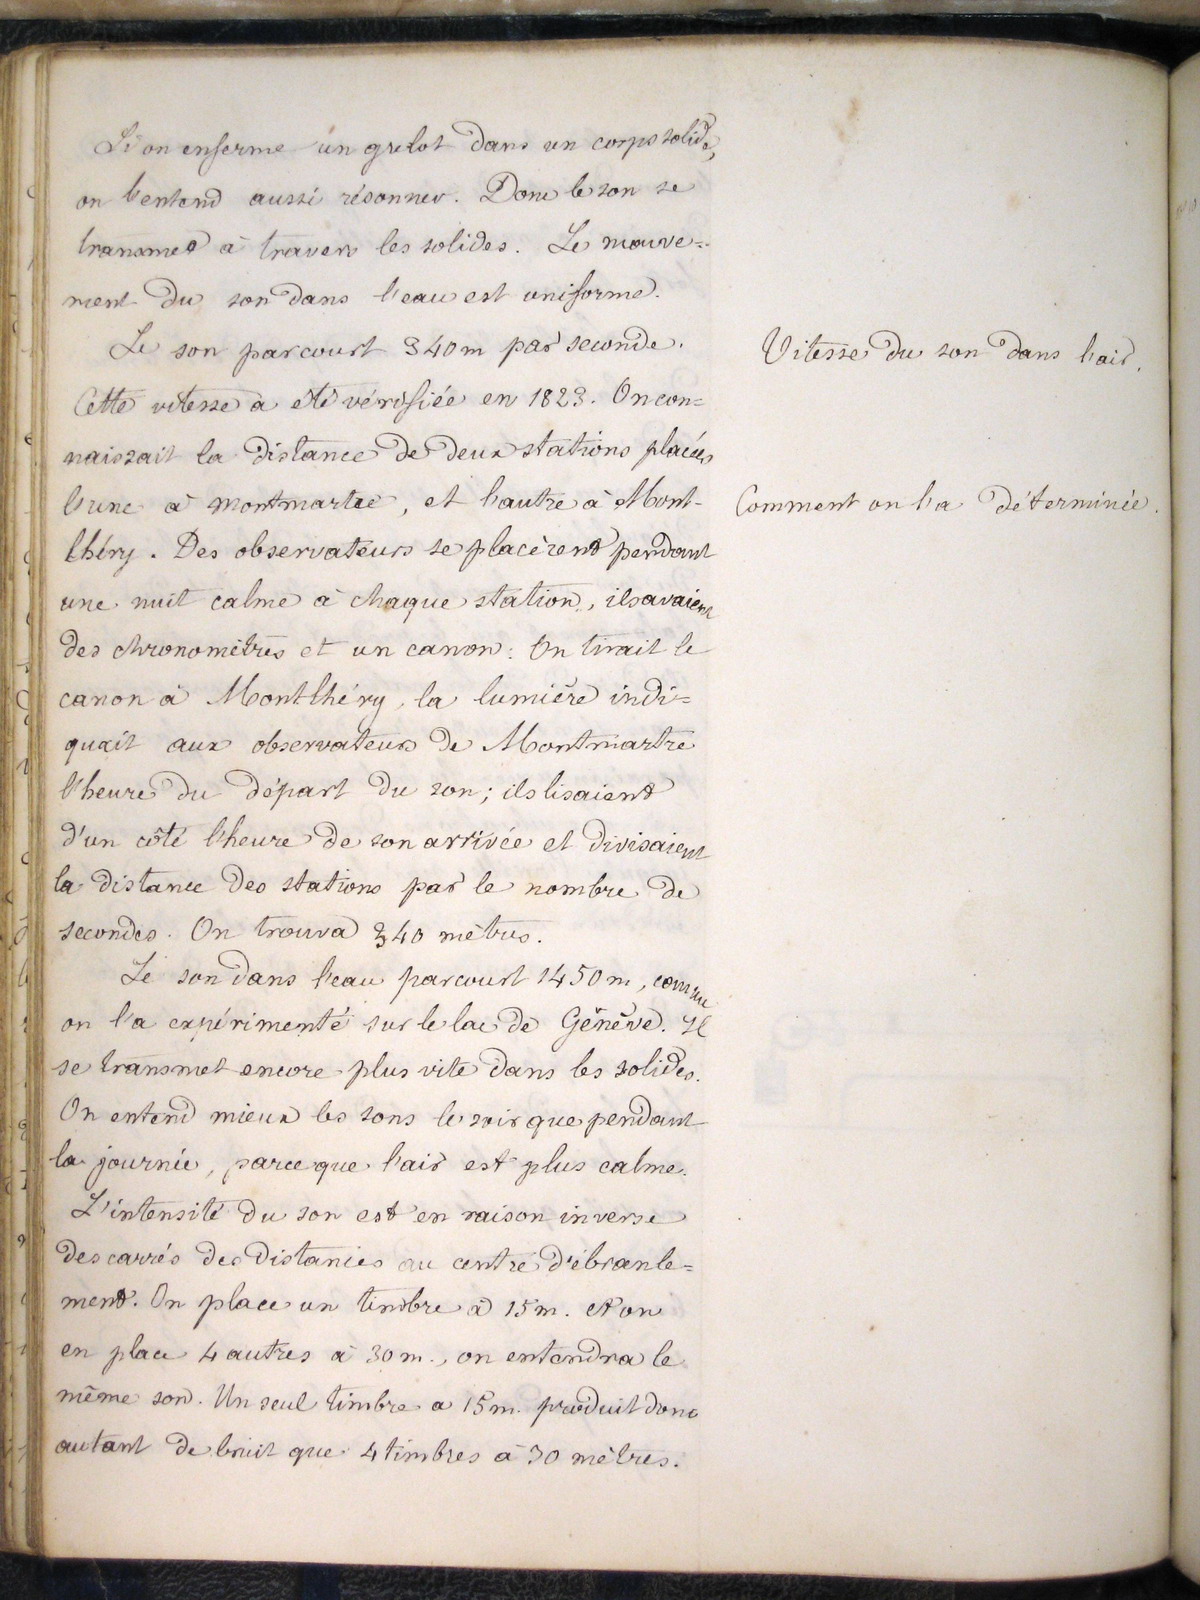 Si on enferme un grelot dans un corps solide,
on l'entend aussi résonner. Donc le son se
transmet à travers les solides. Le mouve=
ment du son dans l'eau est uniforme.
Le son parcourt 340m par seconde.
Vitesse du son dans l'air.
Cette vitesse a été vérifiée en 1823. On con=
naissait la distance de deux stations placées
l'une à Montmartre, et l'autre à Mont-
Comment on l'a déterminée.
lhéry. Des observateurs se placèrent pendant
une nuit calme à chaque station, ils avaient
des chronomètres et un canon. On tirait le
canon à Montlhéry, la lumière indi=
quait aux observateurs de Montmartre
l'heure du départ du son; ils lisaient
d'un côté l'heure de son arrivée et divisaient
la distance des stations par le nombre de
secondes. On trouva 340 mètres.
Le son dans l'eau parcourt 1450m, comme
on l'a expérimenté sur le lac de Génève. Il
se transmet encore plus vite dans les solides.
On entend mieux les sons le soir que pendant
la journée, parce que l'air est plus calme.
L'intensité du son est en raison inverse
des carrés des distances au centre d'ébranle=
ment. On place un timbre à 15m. et on
en place 4 autres à 30m., on entendra le
même son. Un seul timbre a 15m. produit donc
autant de bruit que 4 timbres à 30 mètres.